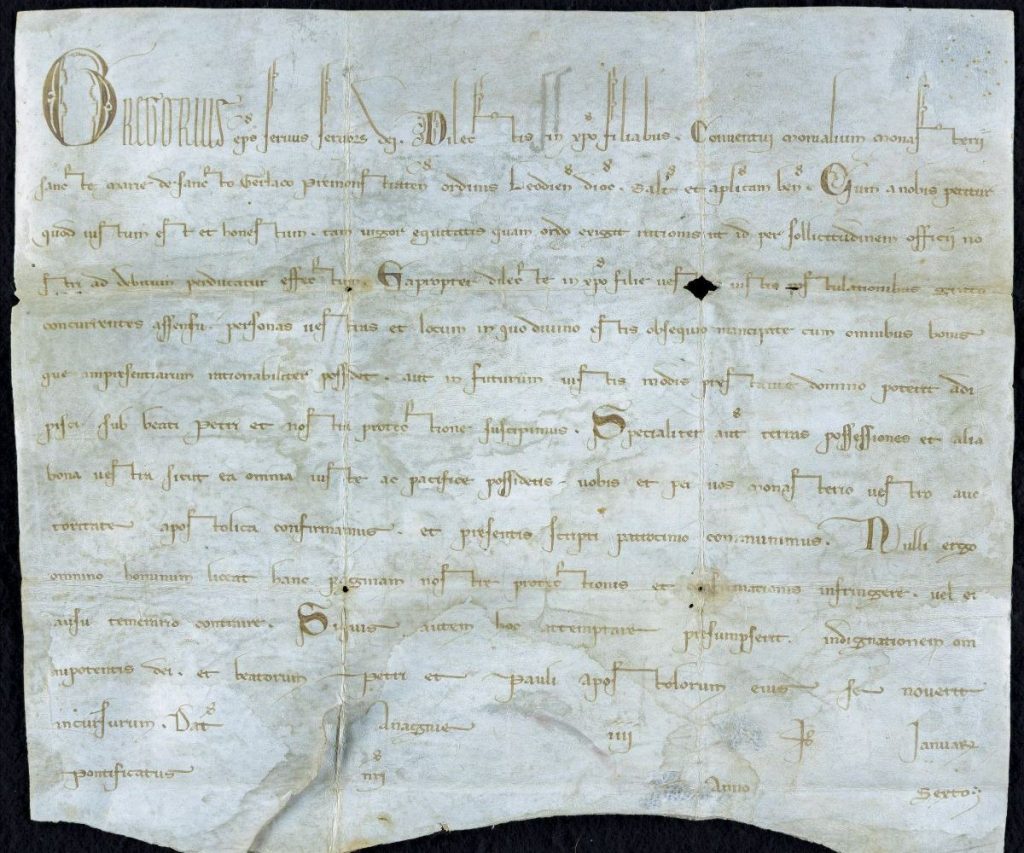 GREGORIUS eps servus servoꝝ dei. Dilectis in xpo filiabus. Conventui monialium monasterii
sancte marie de sancto Gerlaco Premonstraten ordinis Leodien dioc. Salt et aplicam ben. Cum a nobis petitur
quod iustum est et honestum. tam vigor equitatis quam ordo exigit rationis ut id per sollicitudinem officii no
stri ad debitum perducatur effectum. Eapropter dilecte in xpo filie iustis postulationibus grato
concurrentes assensu. personas vestras et locum in quo divino estis obsequio mancipate cum omnibus bonis
que impresentiarum rationabiliter possidet. aut in futurum iustis modis prestante domino poterit adi
pisci sub beati Petri et nostra protectione suscipimus. Specialiter aut terras possessiones et alia
bona vestra sicut ea omnia iuste ac pacifice possidetis. vobis et per vos monasterio vestro auc
toritate apostolica confirmamus. et presentis scripti patrocinio communimus. Nulli ergo
omnino hominum liceat hanc paginam nostre protectionis et infringere. vel ei
ausu temerario contraire. Siquis autem hoc attemptare presumpserit. indignationem om
nipotentis dei. et beatorum Petri et Pauli apostolorum eius se noverit
incursurum. Dat Anagnie iiii kl Januarii
Pontificatus nri Anno Sexto